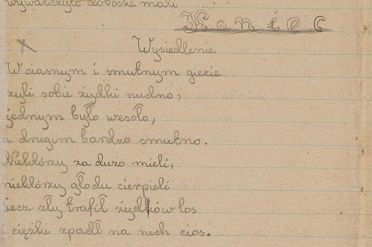 wywalczyli dobosze mali
Koniec
Wysiedlenie
W ciasnym i smutnym gecie
żyli sobie żydki nudno,
jednym było wesoło,
a drugim bardzo smutno.
Niektórzy za dużo mieli,
niektórzy głodu cierpieli
Lecz zły trafił żydków los
ciężki spadł na nich cios.